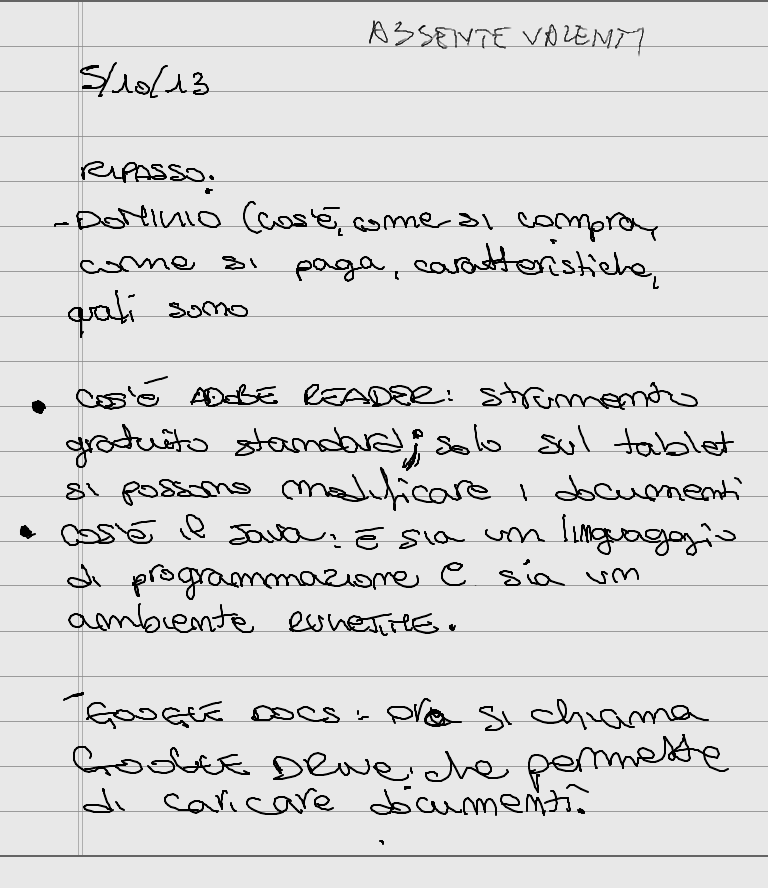 ASSENTE VALENTI
5/10/13
RIPASSO:
- DOMINIO (cos'è, come si compra,
come si paga, caratteristiche,
quali sono
• COS'È ADOBE READER: strumento
gratuito standard; solo sul tablet
si possono modificare i documenti
• COS'È il JAVA: È sia un linguaggio
di programmazione E sia un
ambiente RUNETIME.
- GOOGLE DOCS: ora si chiama
GOOGLE DRIVE, che permette
di caricare documenti.